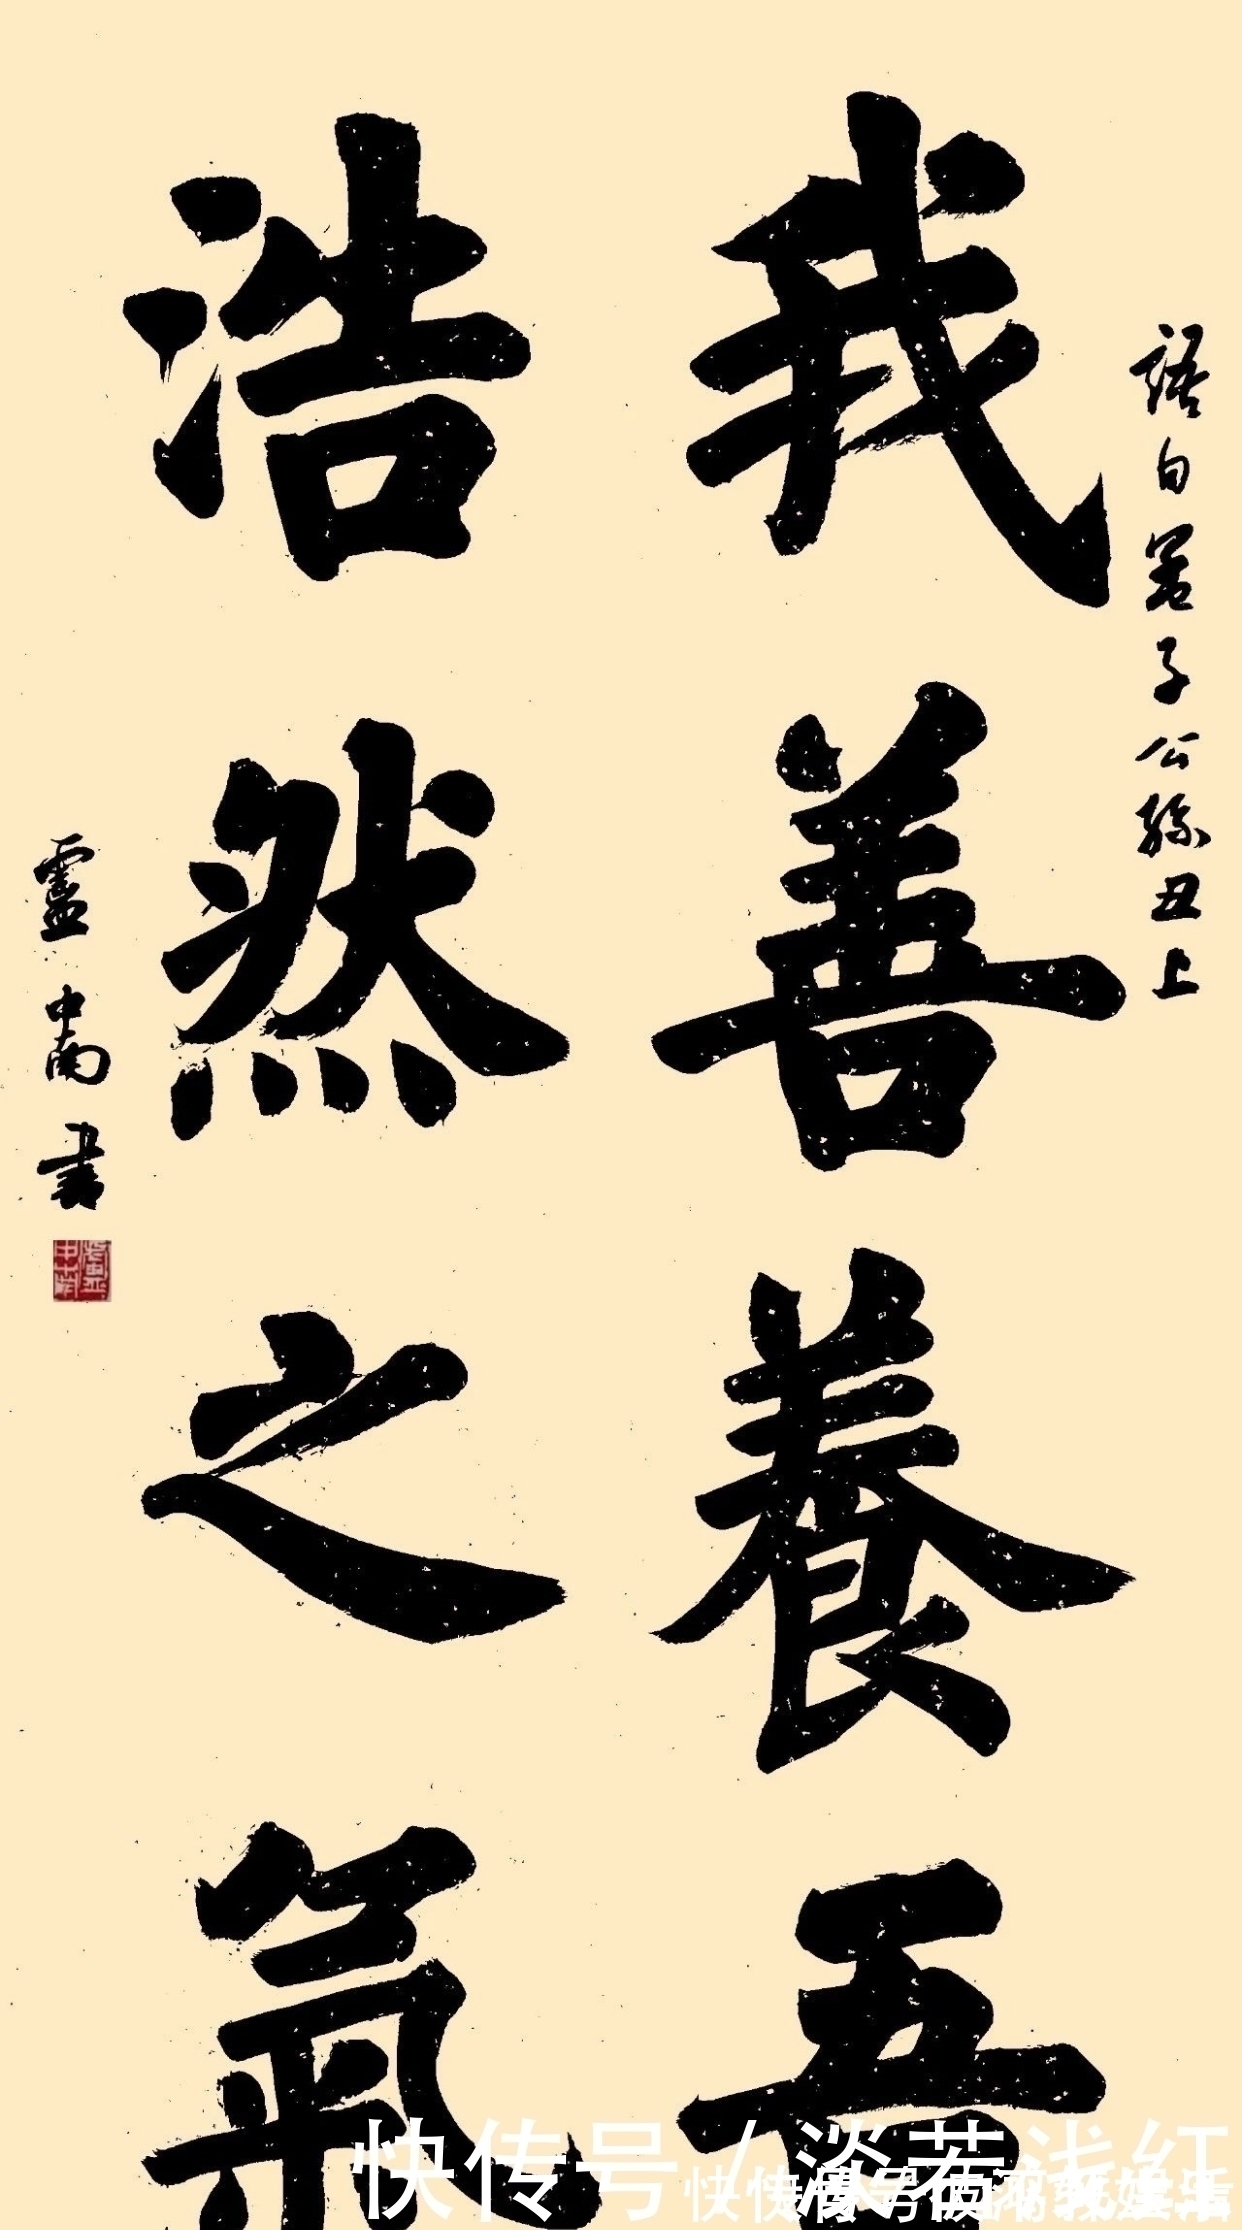 語自孟子公孫丑上
我善養吾
浩然之氣
盧中南書
快传号/淡若浅红